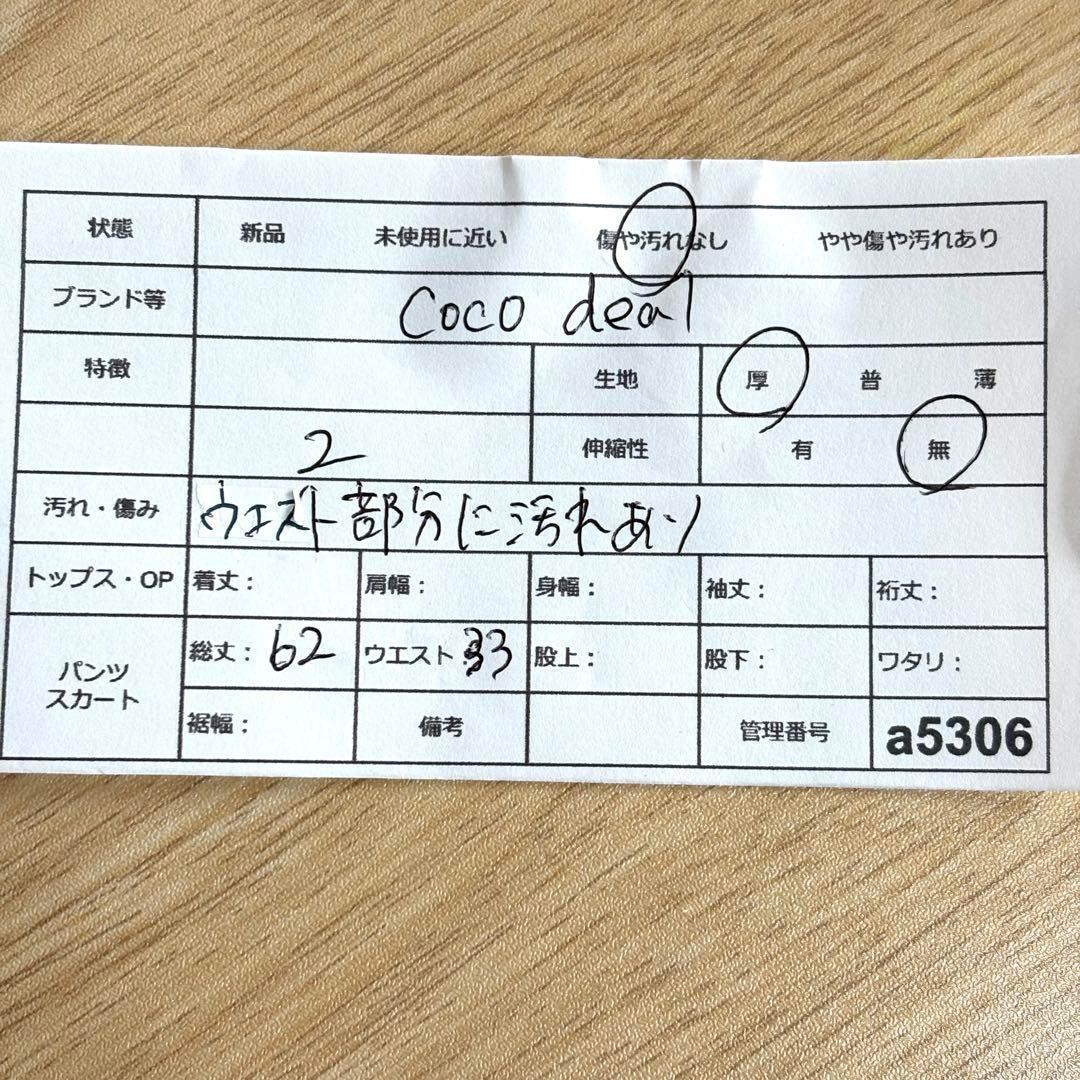 状態 新品 未使用に近い 傷や汚れなし やや傷や汚れあり
ブランド等 coco deal
特徴 生地 厚 普 薄
2 伸縮性 有 無
汚れ・傷み ウエスト部分に汚れあり
トップス・OP 着丈： 肩幅： 身幅： 袖丈： 裄丈：
パンツ
スカート
総丈：62 ウエスト：33 股上： 股下： ワタリ：
裾幅： 備考 管理番号 a5306